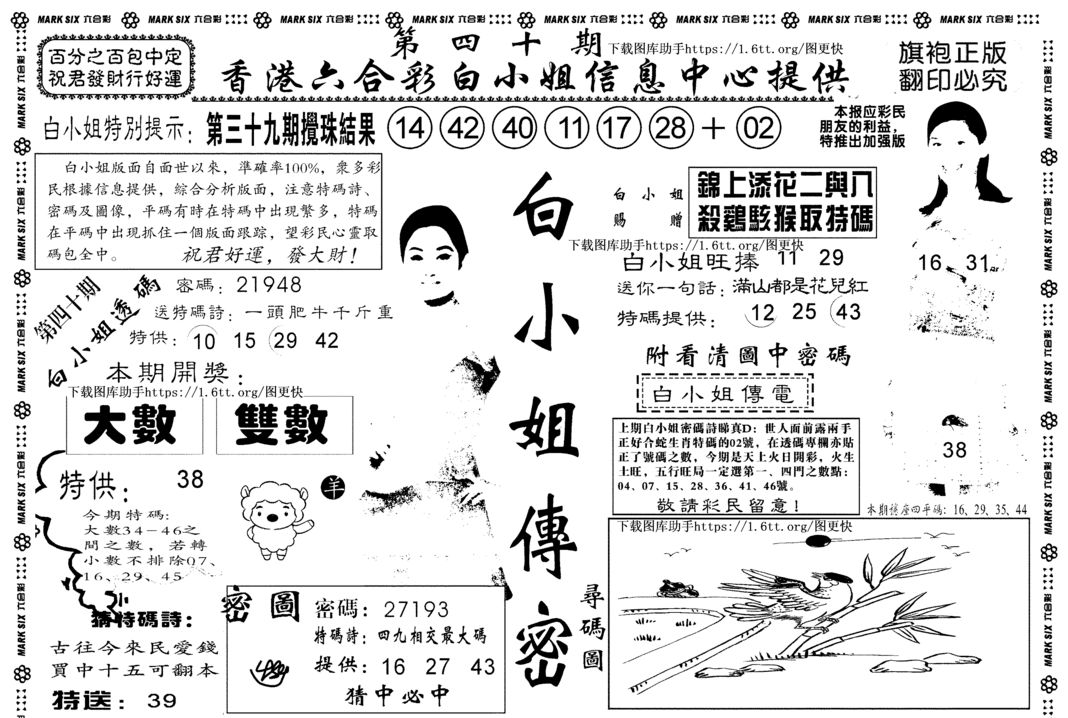 MARK SIX 六合彩 MARK SIX 六合彩 MARK SIX 六合彩 MARK SIX 六合彩 MARK SIX 六合彩 MARK SIX 六合彩 MARK SIX 六合彩 MARK SIX 六合彩
百分之百包中定
祝君發財行好運
第四十期
下载图库助手https://1.6tt.org/图更快
香港六合彩白小姐信息中心提供
旗袍正版
翻印必究
白小姐特別提示:
第三十九期攪珠結果 14 42 40 11 17 28 + 02
本报应彩民
朋友的利益,
特推出加强版
白小姐版面自面世以來,準確率100%,衆多彩
民根據信息提供,綜合分析版面,注意特碼詩、
密碼及圖像,平碼有時在特碼中出現繁多,特碼
在平碼中出現抓住一個版面跟踪,望彩民心靈取
碼包全中。 祝君好運,發大財!
第四十期
白小姐透碼
密碼: 21948
送特碼詩: 一頭肥牛千斤重
特供: 10 15 29 42
本期開獎:
下载图库助手https://1.6tt.org/图更快
大數 雙數
特供: 38
今期特碼:
大數34-46之
間之數,若轉
小數不排除07、
16、29、45
羊
小
猜特碼詩:
古往今來民愛錢
買中十五可翻本
特送: 39
密圖
密碼: 27193
特碼詩: 四九相交最大碼
提供: 16 27 43
猜中必中
白小姐傳密
白小姐
賜贈
錦上添花二與八
殺鷄駭猴取特碼
下载图库助手https://1.6tt.org/图更快
白小姐旺捧 11 29
送你一句話: 滿山都是花兒紅
特碼提供: 12 25 43
附看清圖中密碼
白小姐傳電
上期白小姐密碼詩睇真D: 世人面前露兩手
正好合蛇生肖特碼的02號,在透碼專欄亦貼
正了號碼之數,今期是天上火日開彩,火生
土旺,五行旺局一定選第一、四門之數點:
04、07、15、28、36、41、46號。
敬請彩民留意!
16 31
38
本期後座四平碼: 16、29、35、44
尋碼圖
下载图库助手https://1.6tt.org/图更快